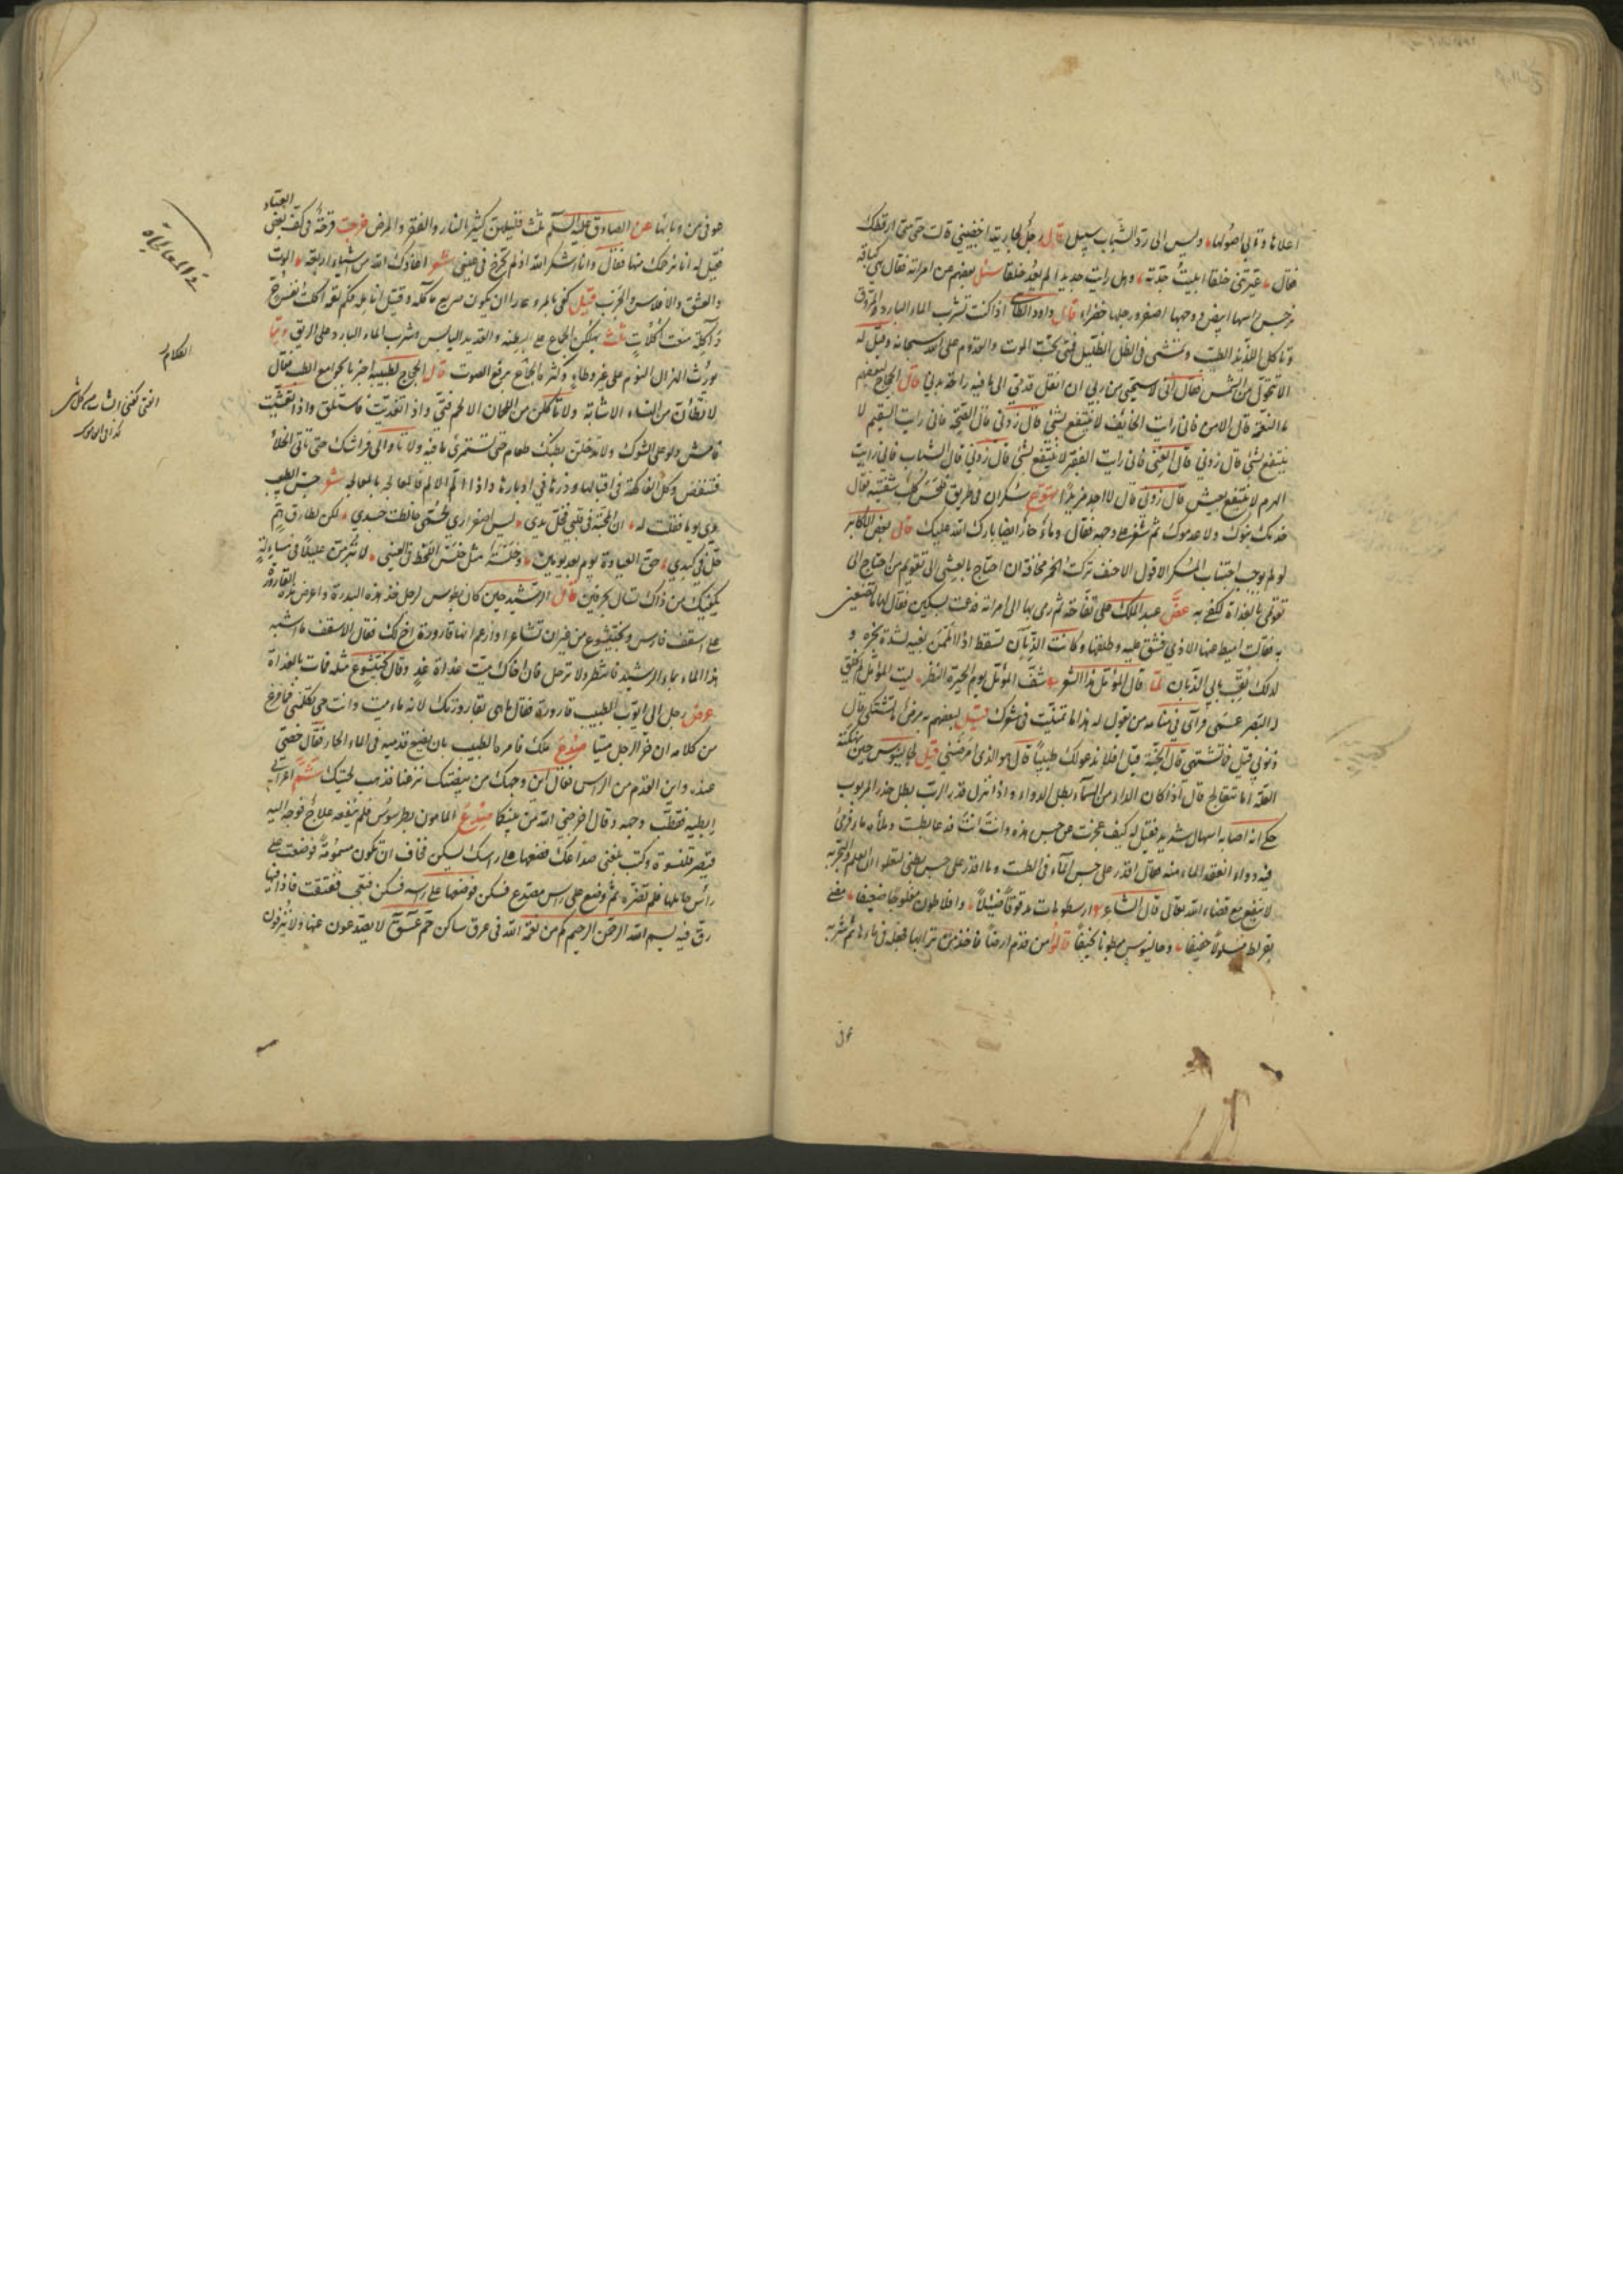 اعلاها وتأبى اصولها وليس الى ردّ الشباب سبيل قال رجل لجاريته اخضبيني قالت حتى متى ارقعك
فقال عيّرتني خلقا ابليت جدّته وهل رأيت جديدا لم يعد خلقا سئل بعضهم عن امرأته فقال هي كباقة
نرجس رأسها ابيض ووجهها اصفر ورجلها خضراء قال داود الطائي اذا كنت تشرب الماء البارد المروق
وتأكل اللذيذ الطيب وتمشي في الظل الظليل فمتى تحب الموت والقدوم على الله سبحانه وقيل له
الا تحول من الشمس فقال اني لاستحيي من ربي ان انقل قدمي الى ما فيه راحة بدني قال الحجاج لبعضهم
ما النعمة قال الامن فاني رأيت الخائف لا ينتفع بشيء قال زدني قال الصحة فاني رأيت السقيم لا
ينتفع بشيء قال زدني قال الغنى فاني رأيت الفقير لا ينتفع بشيء قال زدني قال الشباب فاني رأيت
الهرم لا ينتفع بعيش قال زدني قال لا اجد مزيدا سكران في طريق فلحس كلب شفتيه فقال
خدمك بنوك ولا عدموك ثم شغر على وجهه فقال وماء حار ايضا بارك الله عليك قال بعض الاكابر
لو لم يوجب اجتناب المسكر الا قول الاحنف تركت الخمر مخافة ان احتاج بالعشي الى تقويم من احتاج الى
تقويمي بالغداة لكفى به عضّ عبد الملك على تفاحة ثم رمى بها الى امرأته فدعت بسكين فقال لها ما تصنعين
به فقالت اميط عنها الاذى فشق عليه وطلقها وكانت الذبان تسقط اذا لفيه لشدة بخره و
لذلك لقب بابي الذبان لما قال المؤمل هذا الشعر شفّ المؤمل يوم الحيرة النظر ليت المؤمل لم يخلق
له البصر عمي ورأى في منامه من يقول له هذا ما تمنيت في شعرك قيل لبعضهم في مرضه ما تشتكي قال
ذنوبي قيل فما تشتهي قال الجنة قيل افلا ندعو لك طبيبا قال هو الذي امرضني قيل لجالينوس حين نهكته
العلة اما تتعالج قال اذا كان الداء من السماء بطل الدواء واذا نزل قدر الرب بطل حذر المربوب
حكي انه اصابه اسهال شديد فقيل له كيف عجزت عن حبس هذه وانت انت فدعا بطست وملأه ماء وذرّ
فيه دواء انعقد الماء منه فقال اقدر على حبس الماء في الطست وما اقدر على حبس بطني لتعلموا ان العلم والتجربة
لا ينفع مع قضاء الله تعالى قال الشاعر ارسطو مات مدقوقا ضئيلا وافلاطون مفلوجا ضعيفا مضى
بقراط مسلولا وجالينوس مبطونا نحيفا قالوا من قدم ارضا فاخذ من ترابها فجعله في ماءها ثم شربه
عوفي
عوفي من وبائها عن الصادق عليه السلم ثلث قليلهن كثير النار والفقر والمرض خرجت قرحة في كف بعض العباد
فقيل له انا نرحمك منها فقال وانا اشكر الله اذ لم تخرج في عيني شعر اعاذك الله من اشياء اربعة الموت
والعشق والافلاس والجرب قيل كفى بالمرء عارا ان يكون صريع مأكله وقيل انامله فكم لقمة اكلت نفس حرّ
واكلة منعت اكلات ثلث يهلكن الجماع على البطنة والقديد اليابس وشرب الماء البارد على الريق
يورث الهزال النوم على غير وطاء وكثرة برفع الصوت قال الحجاج لطبيبه اخبرنا بجوامع الطب فقال
لا تطأن من النساء الا شابة ولا تأكلن من اللحمان الا لحم فتيّ واذا تغديت فاستلق واذا تعشيت
فامش ولو على الشوك ولا تدخلن بطنك طعام حتى تستمرئ ما فيه ولا تأو الى فراشك حتى تأتي الخلاء
فتنفض وكل الفاكهة في اقبالها وذرها في ادبارها شعر جسّ الطبيب
يدي يوما فقلت له ان المحبة في قلبي فخلّ يدي ليس اصفراري لحمى خالطت جسدي لكن لطارق همّ
حلّ في كبدي حق العيادة يوم بعد يومين وجلسة مثل خلس اللحظ في العين لا تبرمن عليلا في مساءلة
يكفيك من ذاك تسأل بحرفين قال الرشيد حين كان بطوس لرجل خذ هذه البدرة واعرض هذه القارورة
على اسقف فارس وبختيشوع من غير ان تشاعرا وازعم انها قارورة اخ لك فقال الاسقف ما اشبه
هذا الماء بماء الرشيد فانتظر ولا ترحل فان اخاك ميت غداة غد وقال بختيشوع مثله فمات بالغداة
عرض رجل الى ايوب الطبيب قارورة فقال ما هي بقارورتك لانه ماء ميت وانت حي تكلمني فما فرغ
من كلامه ان خرّ الرجل ميتا صدع ملك فامره الطبيب بان يضع قدميه في الماء الحار فقال خصي
عنده واين القدم من الرأس فقال اين وجهك من بيضتك نزعتا فذهب لحيتك شمّ اعرابي
ابطيه فقطب وجهه وقال اخرجني الله من بينكما صدع المأمون بطرسوس فلم ينفعه علاج فوجه اليه
قيصر قلنسوة وكتب بلغني صداعك فضعها على رأسك يسكن فخاف ان تكون مسمومة فوضعت على
رأس حاملها فلم تضره ثم وضع على رأس مصدع فسكن فوضعها على رأسه فسكن فتعجب ففتقت فاذا فيها
رق فيه بسم الله الرحمن الرحيم كم من نعمة الله في عرق ساكن حم عسق لا يصدعون عنها ولا ينزفون